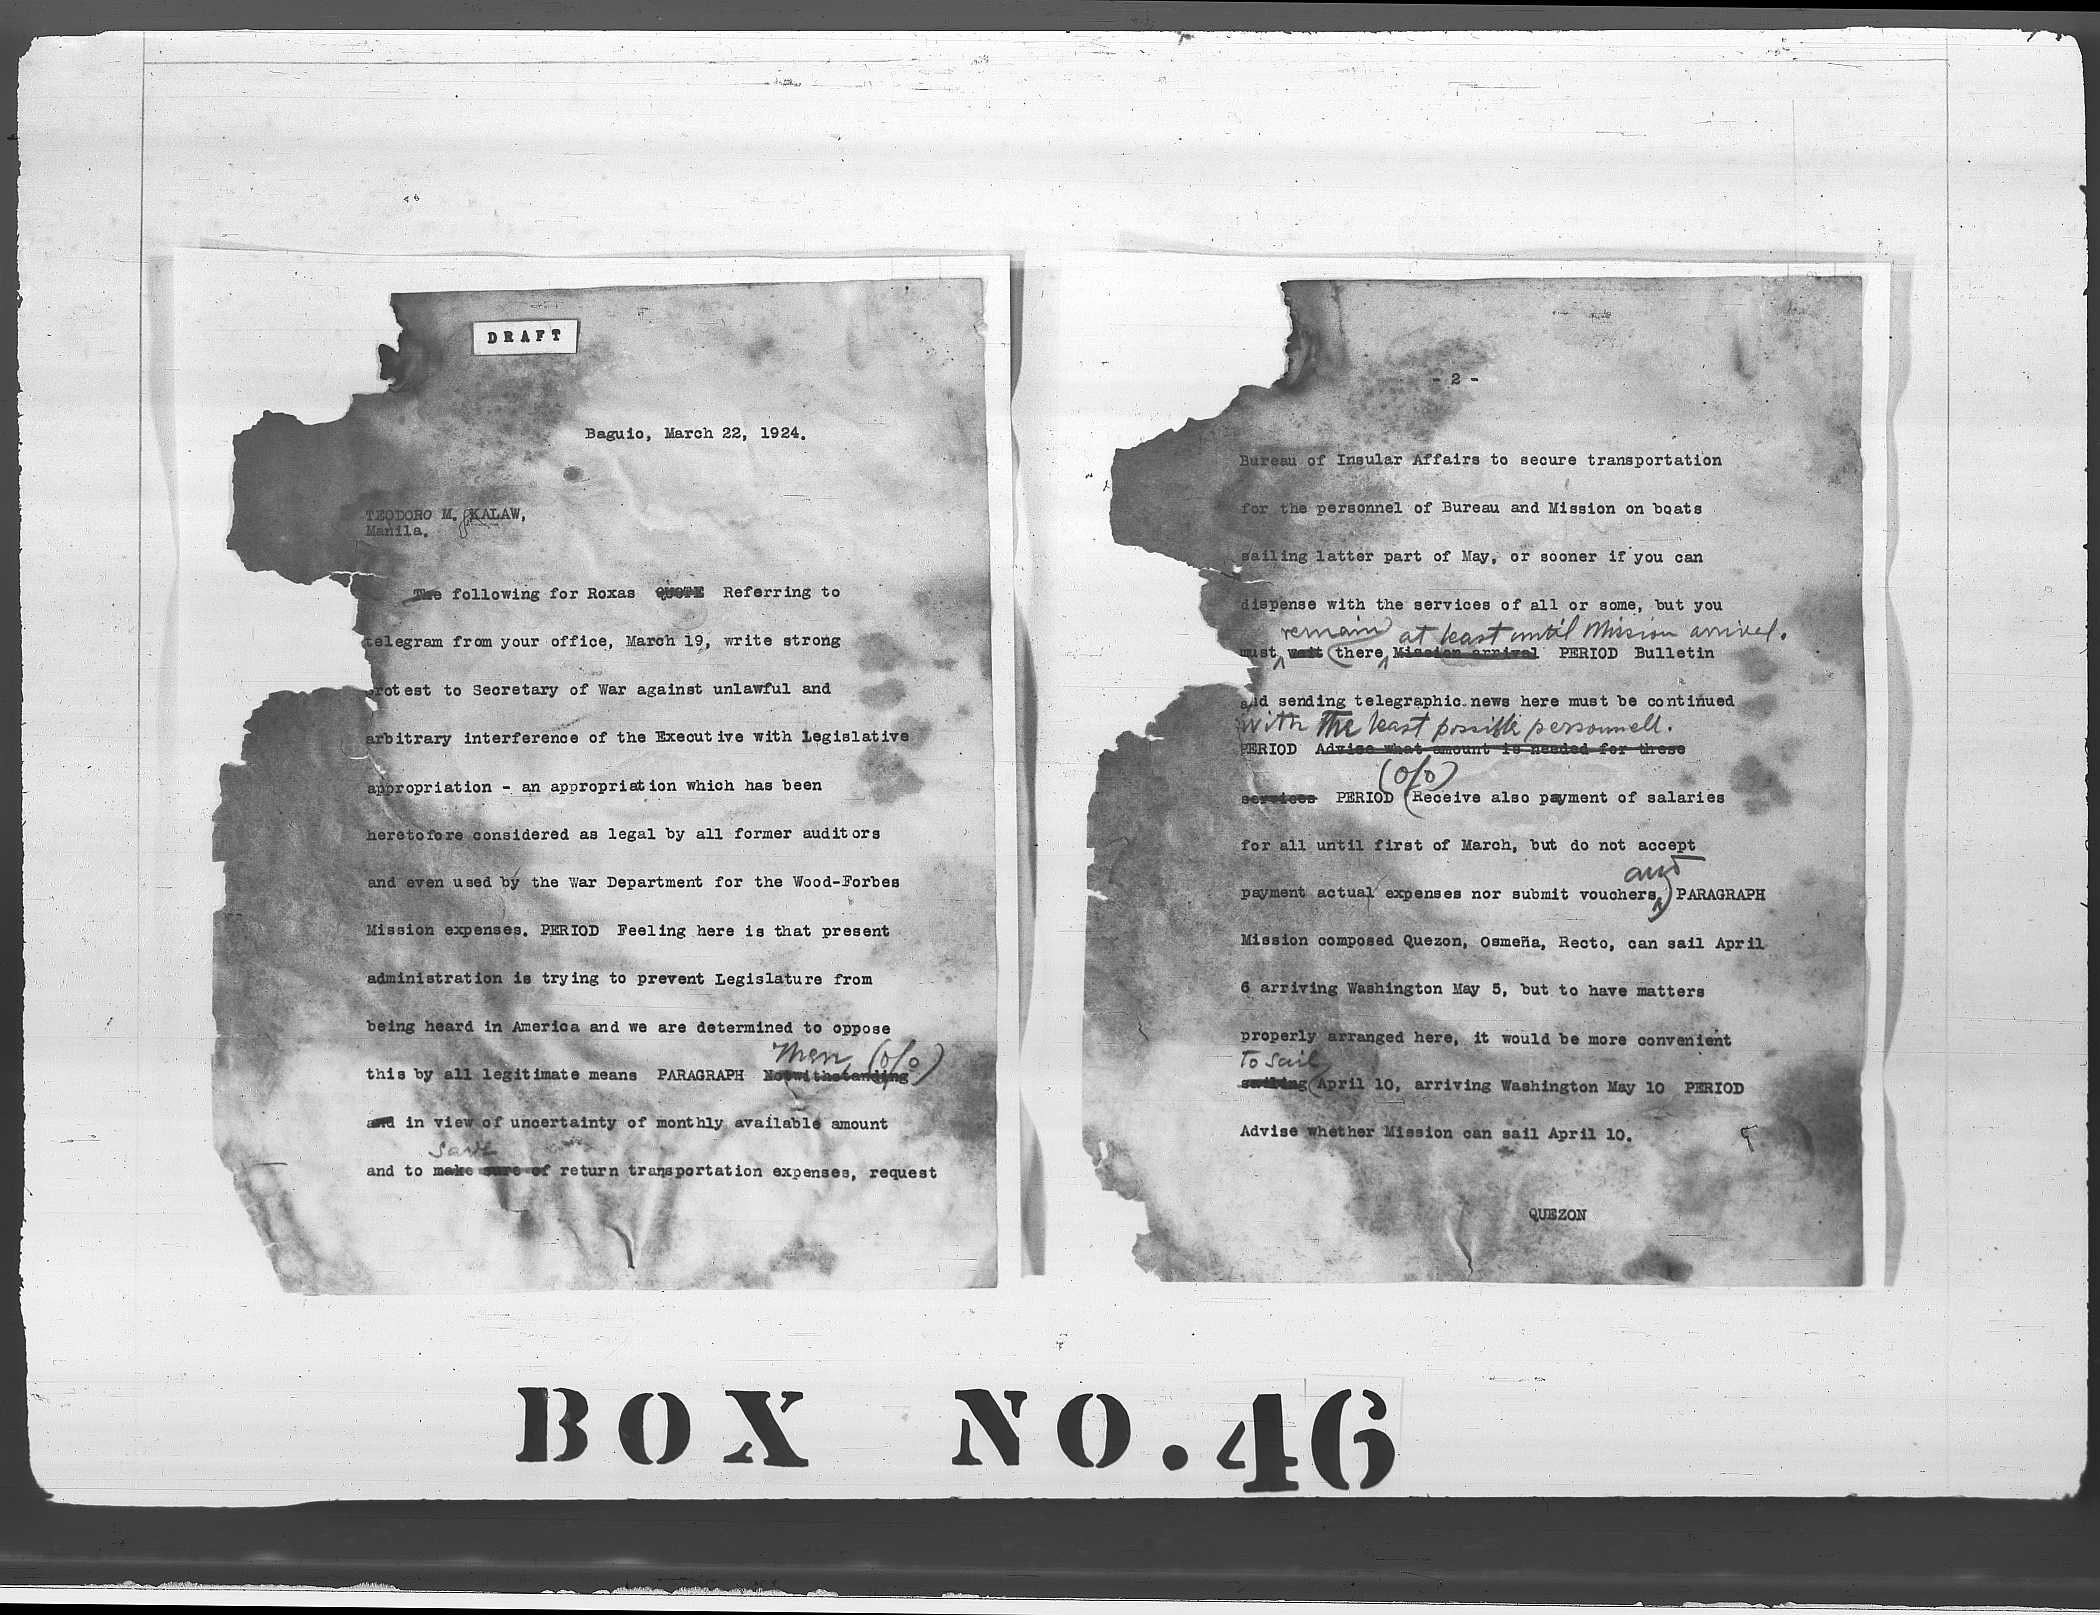 DRAFT
Baguio, March 22, 1924.
TEODORO M. KALAW,
Manila.
The following for Roxas QUOTE Referring to
telegram from your office, March 19, write strong
protest to Secretary of War against unlawful and
arbitrary interference of the Executive with Legislative
appropriation - an appropriation which has been
heretofore considered as legal by all former auditors
and even used by the War Department for the Wood-Forbes
Mission expenses. PERIOD Feeling here is that present
administration is trying to prevent Legislature from
being heard in America and we are determined to oppose
(o/o)
this by all legitimate means PARAGRAPH Notwithstanding
and in view of uncertainty of monthly available amount
save
and to make sure of return transportation expenses, request
- 2 -
Bureau of Insular Affairs to secure transportation
for the personnel of Bureau and Mission on boats
sailing latter part of May, or sooner if you can
dispense with the services of all or some, but you
remain at least until Mission arrival.
must wait there Mission arrival PERIOD Bulletin
and sending telegraphic news here must be continued
with the least possible personnell.
PERIOD Advise what amount is needed for these
(o/o)
services PERIOD (Receive also payment of salaries
for all until first of March, but do not accept
and
payment actual expenses nor submit vouchers) PARAGRAPH
Mission composed Quezon, Osmeña, Recto, can sail April
6 arriving Washington May 5, but to have matters
properly arranged here, it would be more convenient
To sail
sailing (April 10, arriving Washington May 10 PERIOD
Advise whether Mission can sail April 10.
QUEZON
BOX NO. 46